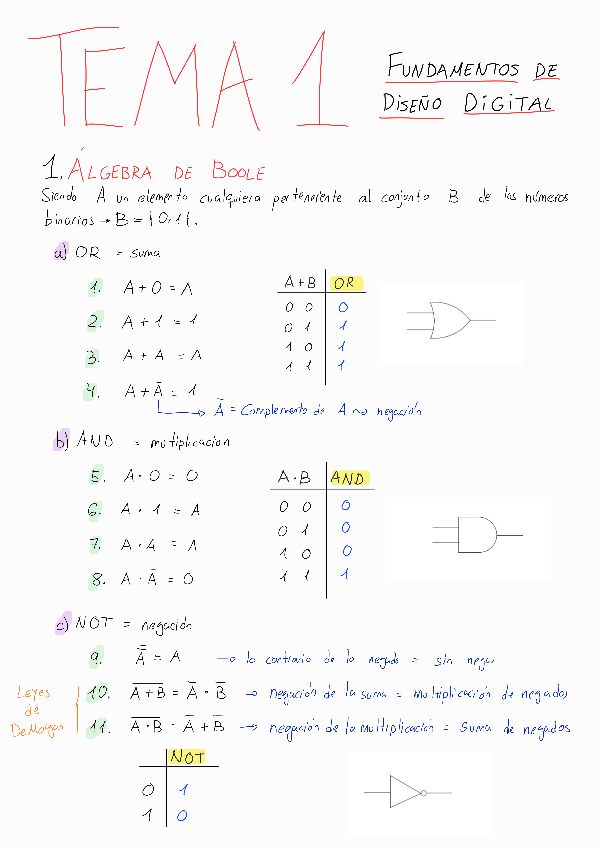 TEMA 1
FUNDAMENTOS DE
DISEÑO DIGITAL
1. ÁLGEBRA DE BOOLE
Siendo A un elemento cualquiera perteneciente al conjunto B de los números
binarios → B = {0,1}.
a) OR = suma
1. A + 0 = A
2. A + 1 = 1
3. A + A = A
4. A + Ā = 1
Ā = Complemento de A ⇝ negación
A+B OR
0 0 0
0 1 1
1 0 1
1 1 1
b) AND = multiplicacion
5. A · 0 = 0
6. A · 1 = A
7. A · A = A
8. A · Ā = 0
A·B AND
0 0 0
0 1 0
1 0 0
1 1 1
c) NOT = negación
9. A̿ = A → lo contrario de lo negado = sin negar
Leyes
de
DeMorgan
10. A̅+̅B̅ = A̅ · B̅ → negación de la suma = multiplicación de negados
11. A̅·̅B̅ = A̅ + B̅ → negación de la multiplicación = suma de negados
NOT
0 1
1 0